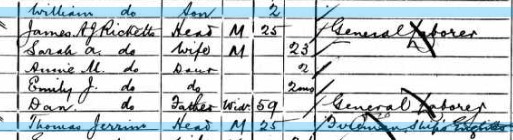 William do Son 2
James A J Ricketts Head M 25 General Laborer
Sarah A. do Wife M 23
Annie M. do Daur 2
Emily J. do do 2mos
Dan. do Father Widr 59 General Laborer
Thomas Perrins Head M 25 Ship's